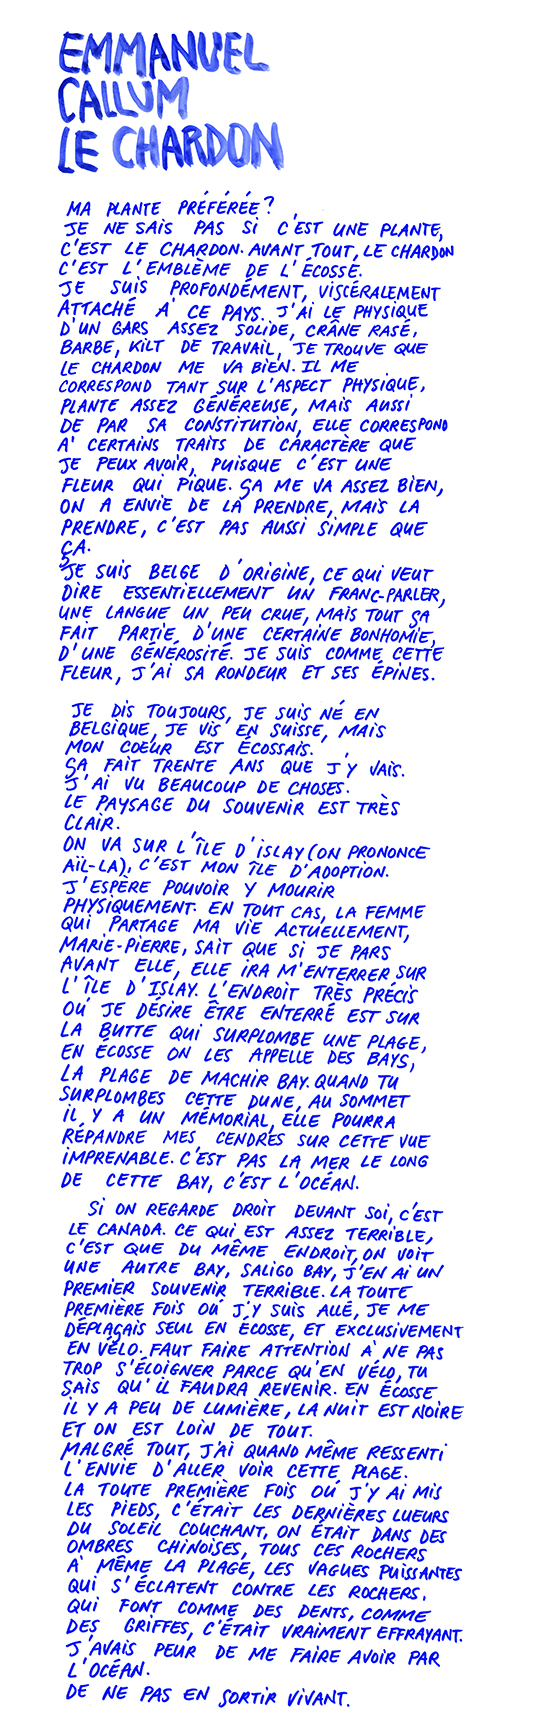 EMMANUEL
CALLUM
LE CHARDON
MA PLANTE PRÉFÉRÉE ?
JE NE SAIS PAS SI C'EST UNE PLANTE,
C'EST LE CHARDON. AVANT TOUT, LE CHARDON
C'EST L'EMBLÈME DE L'ÉCOSSE.
JE SUIS PROFONDÉMENT, VISCÉRALEMENT
ATTACHÉ À CE PAYS. J'AI LE PHYSIQUE
D'UN GARS ASSEZ SOLIDE, CRÂNE RASÉ,
BARBE, KILT DE TRAVAIL, JE TROUVE QUE
LE CHARDON ME VA BIEN. IL ME
CORRESPOND TANT SUR L'ASPECT PHYSIQUE,
PLANTE ASSEZ GÉNÉREUSE, MAIS AUSSI
DE PAR SA CONSTITUTION, ELLE CORRESPOND
À CERTAINS TRAITS DE CARACTÈRE QUE
JE PEUX AVOIR, PUISQUE C'EST UNE
FLEUR QUI PIQUE. ÇA ME VA ASSEZ BIEN,
ON A ENVIE DE LA PRENDRE, MAIS LA
PRENDRE, C'EST PAS AUSSI SIMPLE QUE
ÇA.
JE SUIS BELGE D'ORIGINE, CE QUI VEUT
DIRE ESSENTIELLEMENT UN FRANC-PARLER,
UNE LANGUE UN PEU CRUE, MAIS TOUT ÇA
FAIT PARTIE D'UNE CERTAINE BONHOMIE,
D'UNE GÉNÉROSITÉ. JE SUIS COMME CETTE
FLEUR, J'AI SA RONDEUR ET SES ÉPINES.
JE DIS TOUJOURS, JE SUIS NÉ EN
BELGIQUE, JE VIS EN SUISSE, MAIS
MON COEUR EST ÉCOSSAIS.
ÇA FAIT TRENTE ANS QUE J'Y VAIS.
J'AI VU BEAUCOUP DE CHOSES.
LE PAYSAGE DU SOUVENIR EST TRÈS
CLAIR.
ON VA SUR L'ÎLE D'ISLAY (ON PRONONCE
AÏL-LA), C'EST MON ÎLE D'ADOPTION.
J'ESPÈRE POUVOIR Y MOURIR
PHYSIQUEMENT. EN TOUT CAS, LA FEMME
QUI PARTAGE MA VIE ACTUELLEMENT,
MARIE-PIERRE, SAIT QUE SI JE PARS
AVANT ELLE, ELLE IRA M'ENTERRER SUR
L'ÎLE D'ISLAY. L'ENDROIT TRÈS PRÉCIS
OÙ JE DÉSIRE ÊTRE ENTERRÉ EST SUR
LA BUTTE QUI SURPLOMBE UNE PLAGE,
EN ÉCOSSE ON LES APPELLE DES BAYS,
LA PLAGE DE MACHIR BAY. QUAND TU
SURPLOMBES CETTE DUNE, AU SOMMET
IL Y A UN MÉMORIAL, ELLE POURRA
RÉPANDRE MES CENDRES SUR CETTE VUE
IMPRENABLE. C'EST PAS LA MER LE LONG
DE CETTE BAY, C'EST L'OCÉAN.
SI ON REGARDE DROIT DEVANT SOI, C'EST
LE CANADA. CE QUI EST ASSEZ TERRIBLE,
C'EST QUE DU MÊME ENDROIT, ON VOIT
UNE AUTRE BAY, SALIGO BAY, J'EN AI UN
PREMIER SOUVENIR TERRIBLE. LA TOUTE
PREMIÈRE FOIS OÙ J'Y SUIS ALLÉ, JE ME
DÉPLAÇAIS SEUL EN ÉCOSSE, ET EXCLUSIVEMENT
EN VÉLO. FAUT FAIRE ATTENTION À NE PAS
TROP S'ÉLOIGNER PARCE QU'EN VÉLO, TU
SAIS QU'IL FAUDRA REVENIR. EN ÉCOSSE
IL Y A PEU DE LUMIÈRE, LA NUIT EST NOIRE
ET ON EST LOIN DE TOUT.
MALGRÉ TOUT, J'AI QUAND MÊME RESSENTI
L'ENVIE D'ALLER VOIR CETTE PLAGE.
LA TOUTE PREMIÈRE FOIS OÙ J'Y AI MIS
LES PIEDS, C'ÉTAIT LES DERNIÈRES LUEURS
DU SOLEIL COUCHANT, ON ÉTAIT DANS DES
OMBRES CHINOISES, TOUS CES ROCHERS
À MÊME LA PLAGE, LES VAGUES PUISSANTES
QUI S'ÉCLATENT CONTRE LES ROCHERS,
QUI FONT COMME DES DENTS, COMME
DES GRIFFES, C'ÉTAIT VRAIMENT EFFRAYANT.
J'AVAIS PEUR DE ME FAIRE AVOIR PAR
L'OCÉAN.
DE NE PAS EN SORTIR VIVANT.